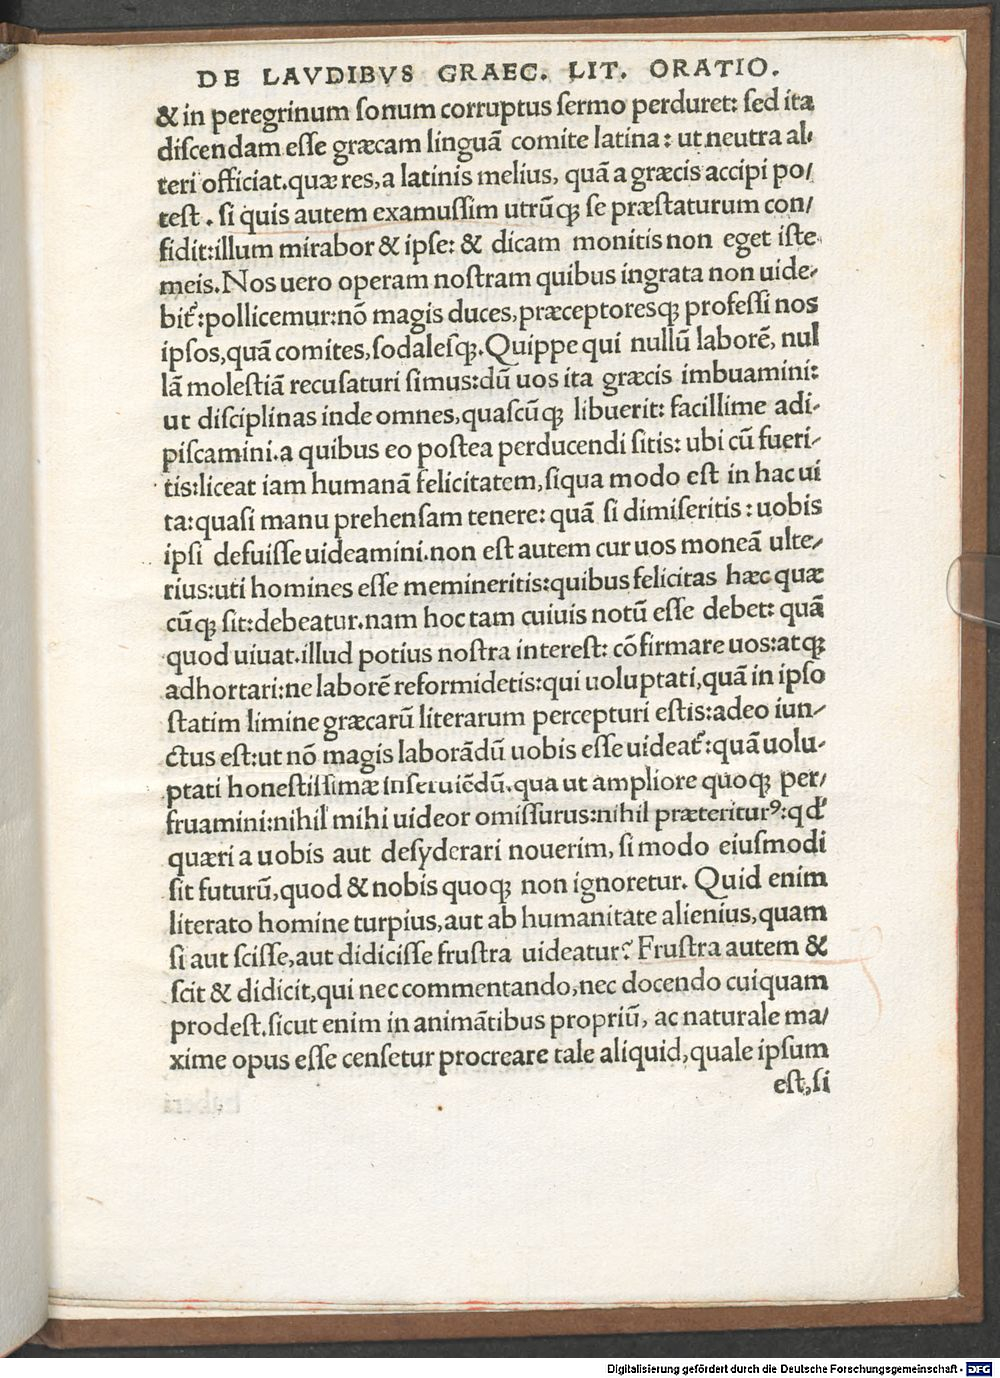 DE LAVDIBVS GRAEC. LIT. ORATIO.
& in peregrinum ſonum corruptus ſermo perduret: ſed ita
diſcendam eſſe græcam linguā comite latina: ut neutra al-
teri officiat.quæ res, a latinis melius, quā a græcis accipi po/
teſt. ſi quis autem examuſſim utrūqꝫ ſe præſtaturum con/
fidit:illum mirabor & ipſe: & dicam monitis non eget iſte
meis.Nos uero operam noſtram quibus ingrata non uide-
bit᷑:pollicemur:nō magis duces,præceptoreſqꝫ profeſſi nos
ipſos,quā comites,ſodaleſqꝫ.Quippe qui nullū laborē, nul
lā moleſtiā recuſaturi ſimus:dū uos ita græcis imbuamini:
ut diſciplinas inde omnes,quaſcūqꝫ libuerit: facillime adi-
piſcamini.a quibus eo poſtea perducendi ſitis: ubi cū fueri-
tis:liceat iam humanā felicitatem,ſiqua modo eſt in hac ui
ta:quaſi manu prehenſam tenere: quā ſi dimiſeritis : uobis
ipſi defuiſſe uideamini.non eſt autem cur uos moneā ulte-
rius:uti homines eſſe memineritis:quibus felicitas hæc quæ
cūqꝫ ſit:debeatur.nam hoc tam cuiuis notū eſſe debet: quā
quod uiuat.illud potius noſtra intereſt: cōfirmare uos:atqꝫ
adhortari:ne laborē reformidetis:qui uoluptati,quā in ipſo
ſtatim limine græcarū literarum percepturi eſtis:adeo iun-
ctus eſt:ut nō magis laborādū uobis eſſe uideat᷑:quā uolu-
ptati honeſtiſſimæ inſeruiēdū.qua ut ampliore quoqꝫ per/
fruamini:nihil mihi uideor omiſſurus:nihil præteriturꝰ:qđ
quæri a uobis aut deſyderari nouerim, ſi modo eiuſmodi
ſit futurū,quod & nobis quoqꝫ non ignoretur. Quid enim
literato homine turpius,aut ab humanitate alienius,quam
ſi aut ſciſſe,aut didiciſſe fruſtra uideatur? Fruſtra autem &
ſcit & didicit,qui nec commentando,nec docendo cuiquam
prodeſt.ſicut enim in animātibus propriū, ac naturale ma/
xime opus eſſe cenſetur procreare tale aliquid,quale ipſum
eſt,ſi
Digitalisierung gefördert durch die Deutsche Forschungsgemeinschaft - DFG